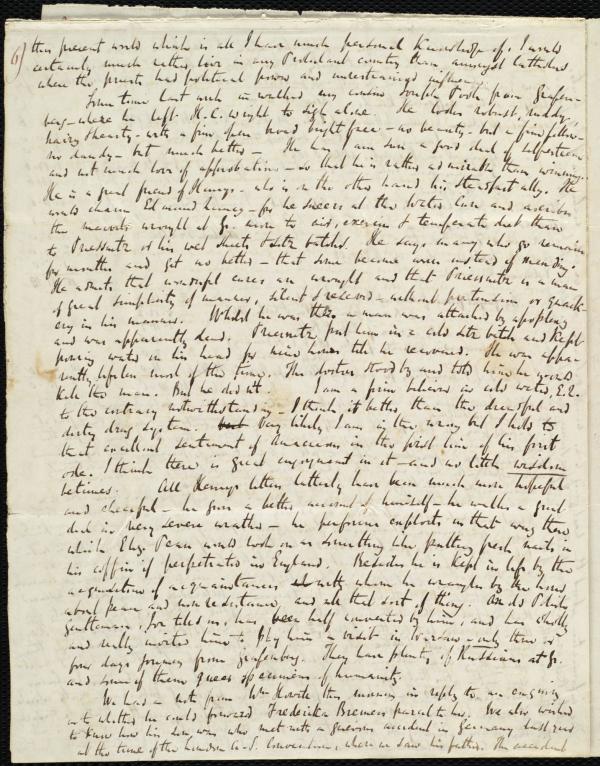 6)
this present world which is all I have much personal knowledge of. I would
certainly much rather live in any Protestant country than amongst Catholics
where the priests had political power and undermining influence.
Some time last week in walked my cousin Joseph Poole from Grafen-
berg - where he left H. C. Wright to sigh alone. He looks robust, ruddy,
hairy & hearty - with a fine open broad bright face - no beauty - but a fine fellow -
no dandy - but much better - He has I am sure a good deal of selfesteem
and not much love of approbation - so that he is rather admirable than winning.
He is a great friend of Henry's - who is on the other hand his steadfast ally. He
would charm Edmund Quincy - for he sneers at the Water Cure and ascribes
the marvels wrought at Gr. more to air, exercise & temperate diet than
to Priessnitz or his wet sheets & sitz baths. He says many who go remain
for months and get no better - that some become worse instead of mending.
He admits that wonderful cures are wrought and that Priessnitz is a man
of great simplicity of manner, silent & reserved - without pretension or quack-
ery in his manner. Whilst he was there a man was attacked by apoplexy
and was apparently dead. Priessnitz put him in a cold sitz bath and kept
pouring water on his head for nine hours till he recovered. He was appa-
rently lifeless most of the time. The doctors stood by and told him he would
kill the man. But he did not. I am a firm believer in cold water, E. Q.
to the contrary notwithstanding - I think it better than the dreadful and
dirty drug system. Very likely I am in the wrong but I hold to
that excellent sentiment of Anacreon in the first line of his first
ode. I think there is great enjoyment in it - and no little wisdom
betimes. All Henry's letters latterly have been much more hopeful
and cheerful - he gives a better account of himself - he walks a great
deal in very severe weather - he performs exploits in that way there
which Eliz. Pease would look on as something like putting fresh nails in
his coffin if perpetrated in England. Besides he is kept in life by the
acquisition of acquaintances with whom he wrangles by the hour
about peace and non resistance, and all that sort of thing. An old Polish
Gentleman, Joe tells us, has been half converted by him, and has wholly
and really invited him to pay him a visit in Warsaw - only three or
four days journey from Grafenberg. They have plenty of Russians at Gr.
and some of them queer specimens of humanity.
We had a note from Wm Howitt this morning in reply to an enquiry
as to whether he could forward Frederika Bremer's parcel to her. We also wished
to know how his son, was who met with a grievous accident in Germany last year
at the time of the London A-S. Convention, where we saw his father. The accident